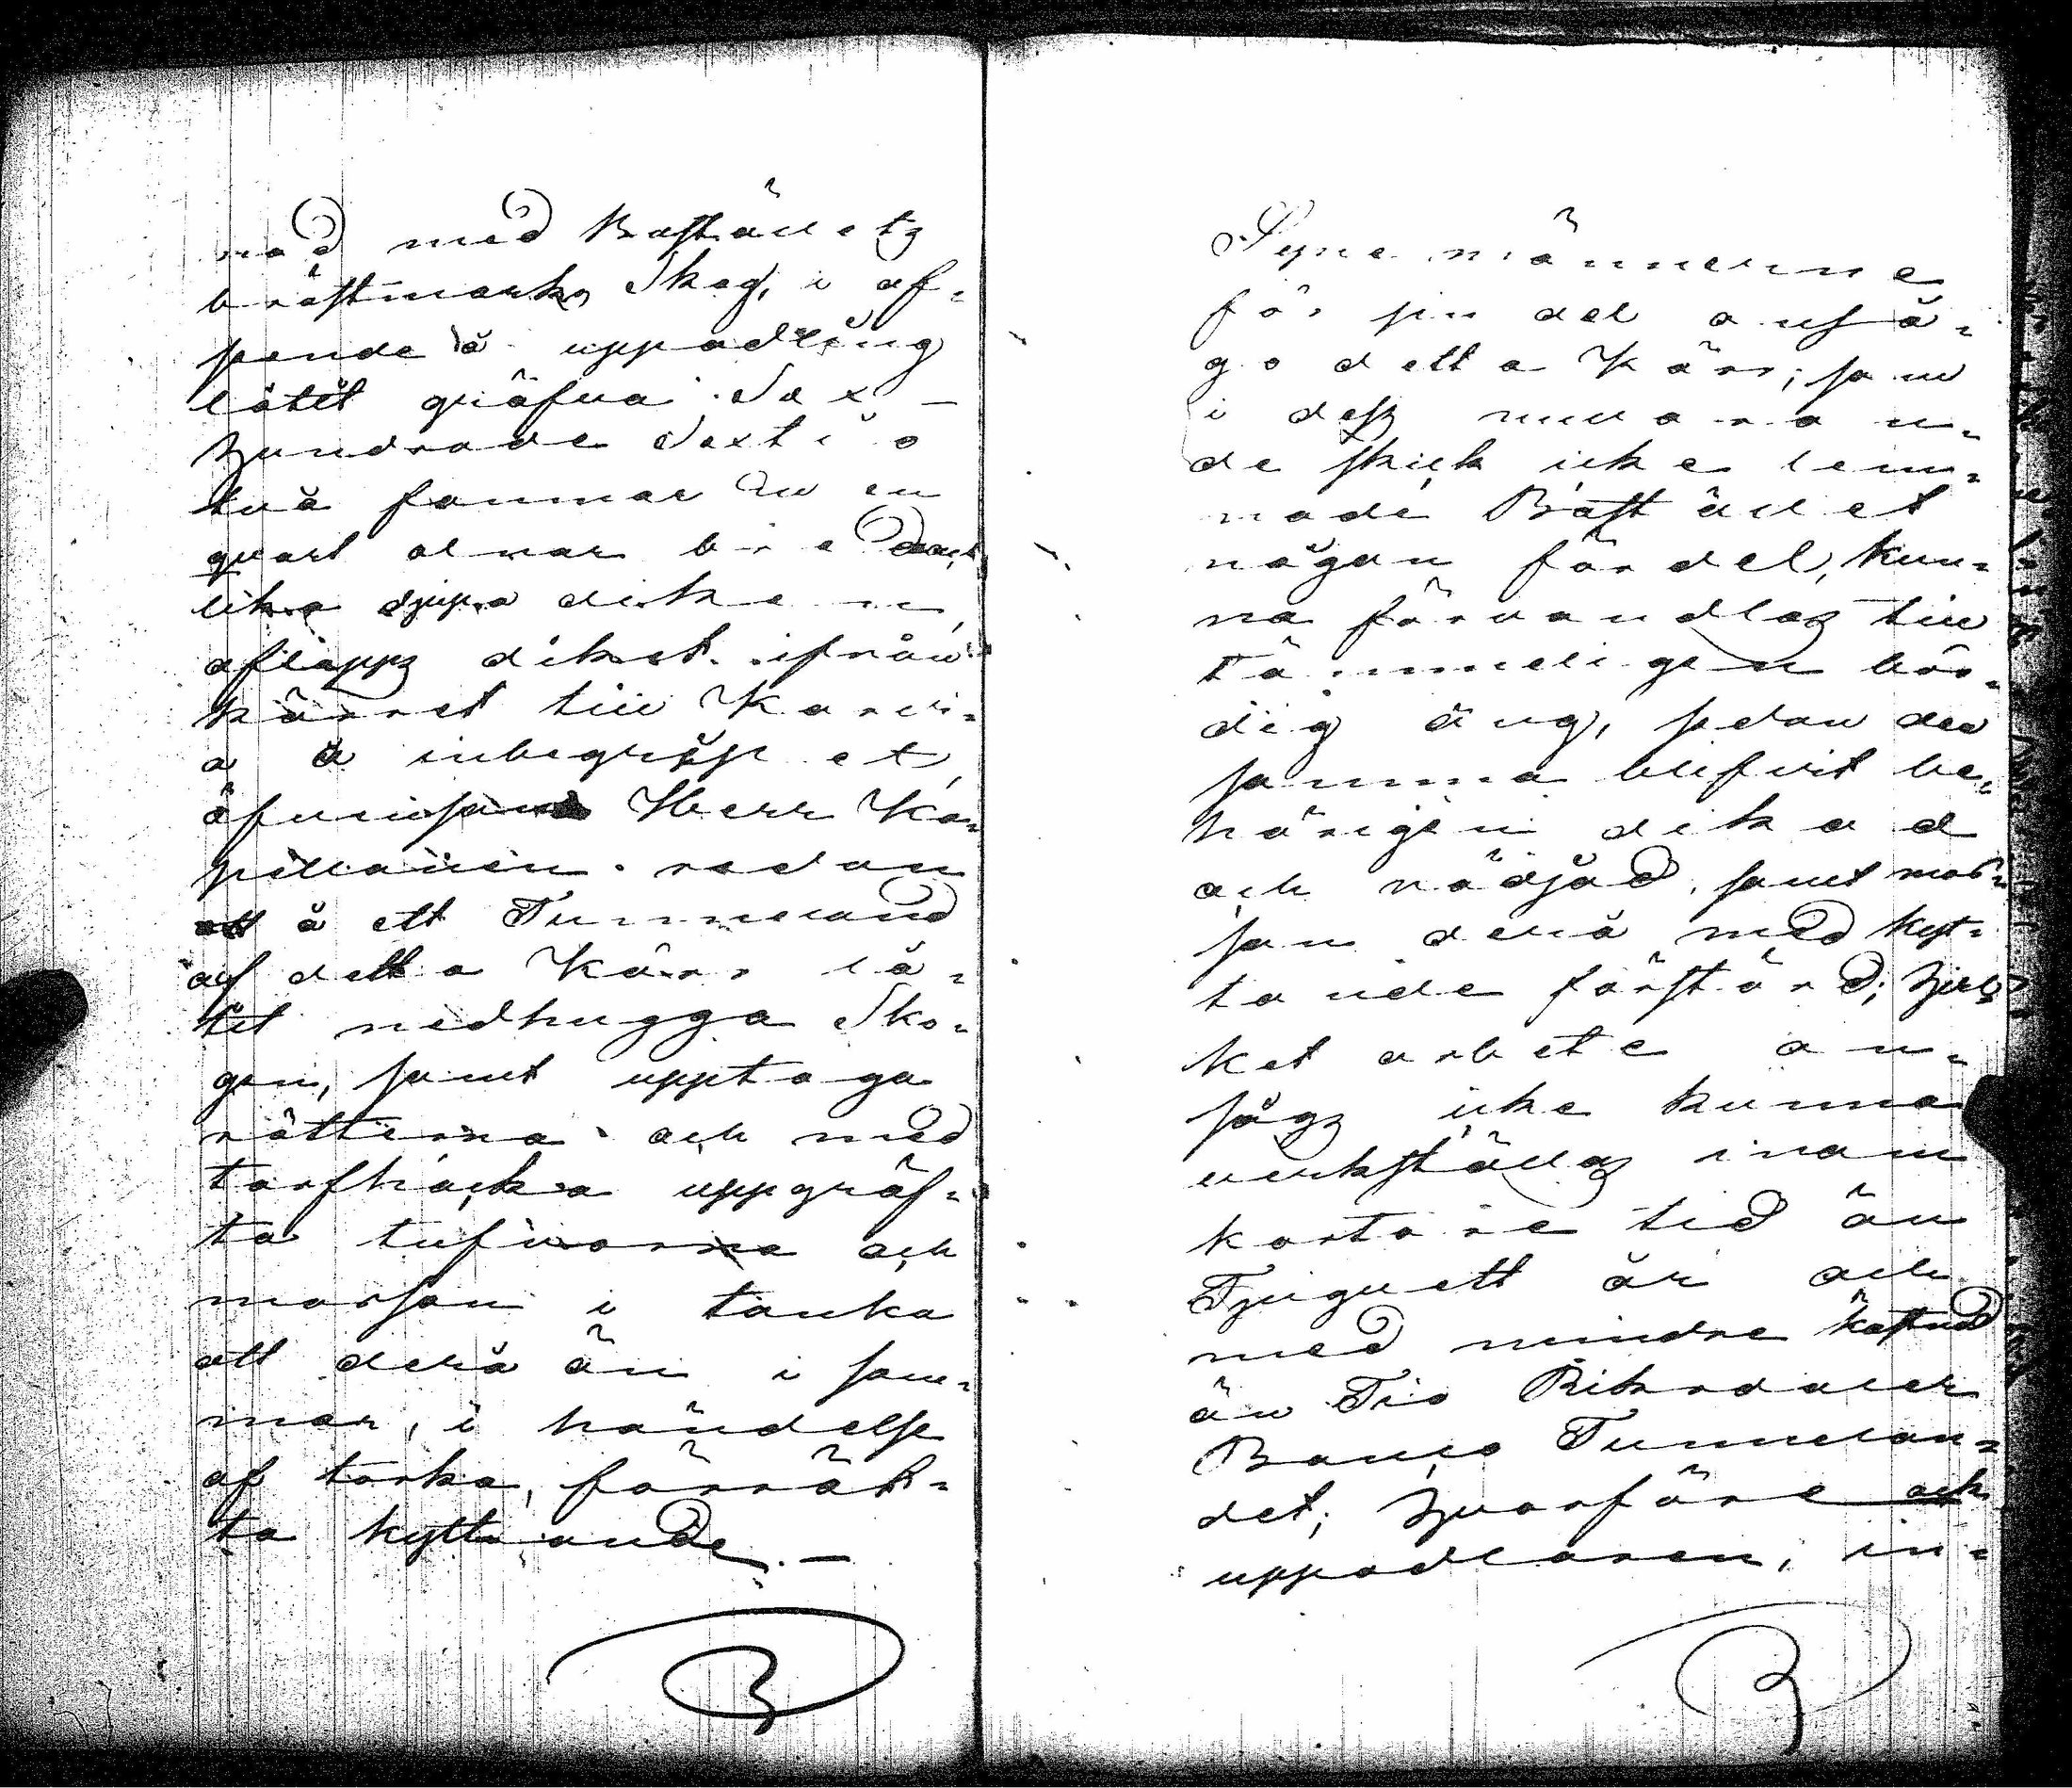 nad med Boställetz
bråstmarks Skog, i af-
seende å uppodling
låtit gräfva Sex-
hundrade Sextio
två famnar två en
qvart alnar bred och
lika djupa diken,
aflåpps diket ifrån
kärret till Karvi-
a å inbegripet,
äfvensom Herr Ka-
pellanen redan
å ett Tunneland
af detta Kärr lå-
tit nedhugga Sko-
gen, samt upptaga
rötterna och med
torfhacka uppgräf-
ta tufvorna och
mossan i tanka
att derå än i som-
mar, i händelse
af torka, förrät-
ta kyttande. —
Synemännerne
för sin del anså-
go detta Kärr, som
i dess nuvaran-
de skick icke lem-
nade Bostället
någon fördel, kun-
na förvandlas till
tämmeligen bör-
dig äng, sedan den
samma blifvit be-
hörigen dikad
och rödjad, samt mos-
san derå med kyt-
tande förstörd; hvil-
ket arbete an-
sågs icke kunna
verkställas inom
kortare tid än
Tjuguett år och
med mindre kostnad
än Tio Riksdaler
Banco Tunnelan-
det; hvarföre och
uppodlaren, in-